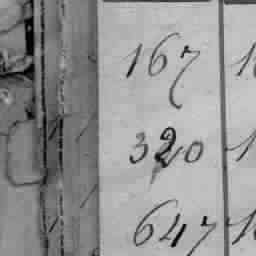 167
320
647